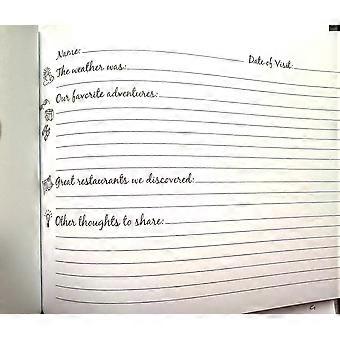 Name: Date of Visit:
The weather was:
Our favorite adventures:
Great restaurants we discovered:
Other thoughts to share: